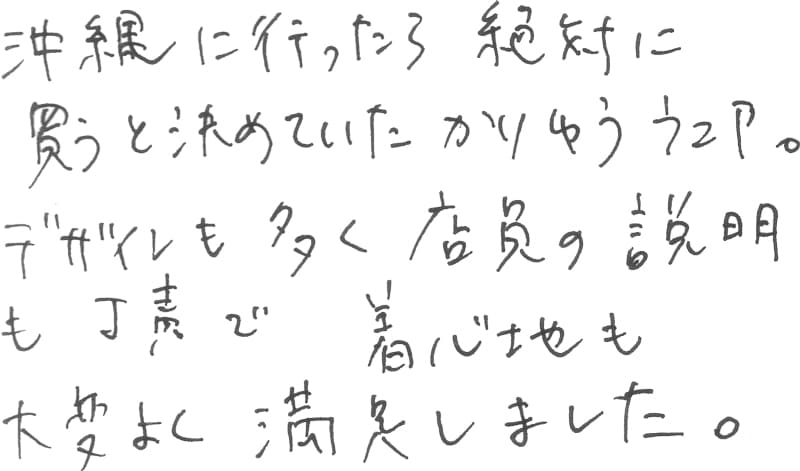 沖縄に行ったら 絶対に
買うと決めていた かりゆうウェア。
デザインも多く 店員の説明
も丁寧で 着心地も
大変よく 満足しました。